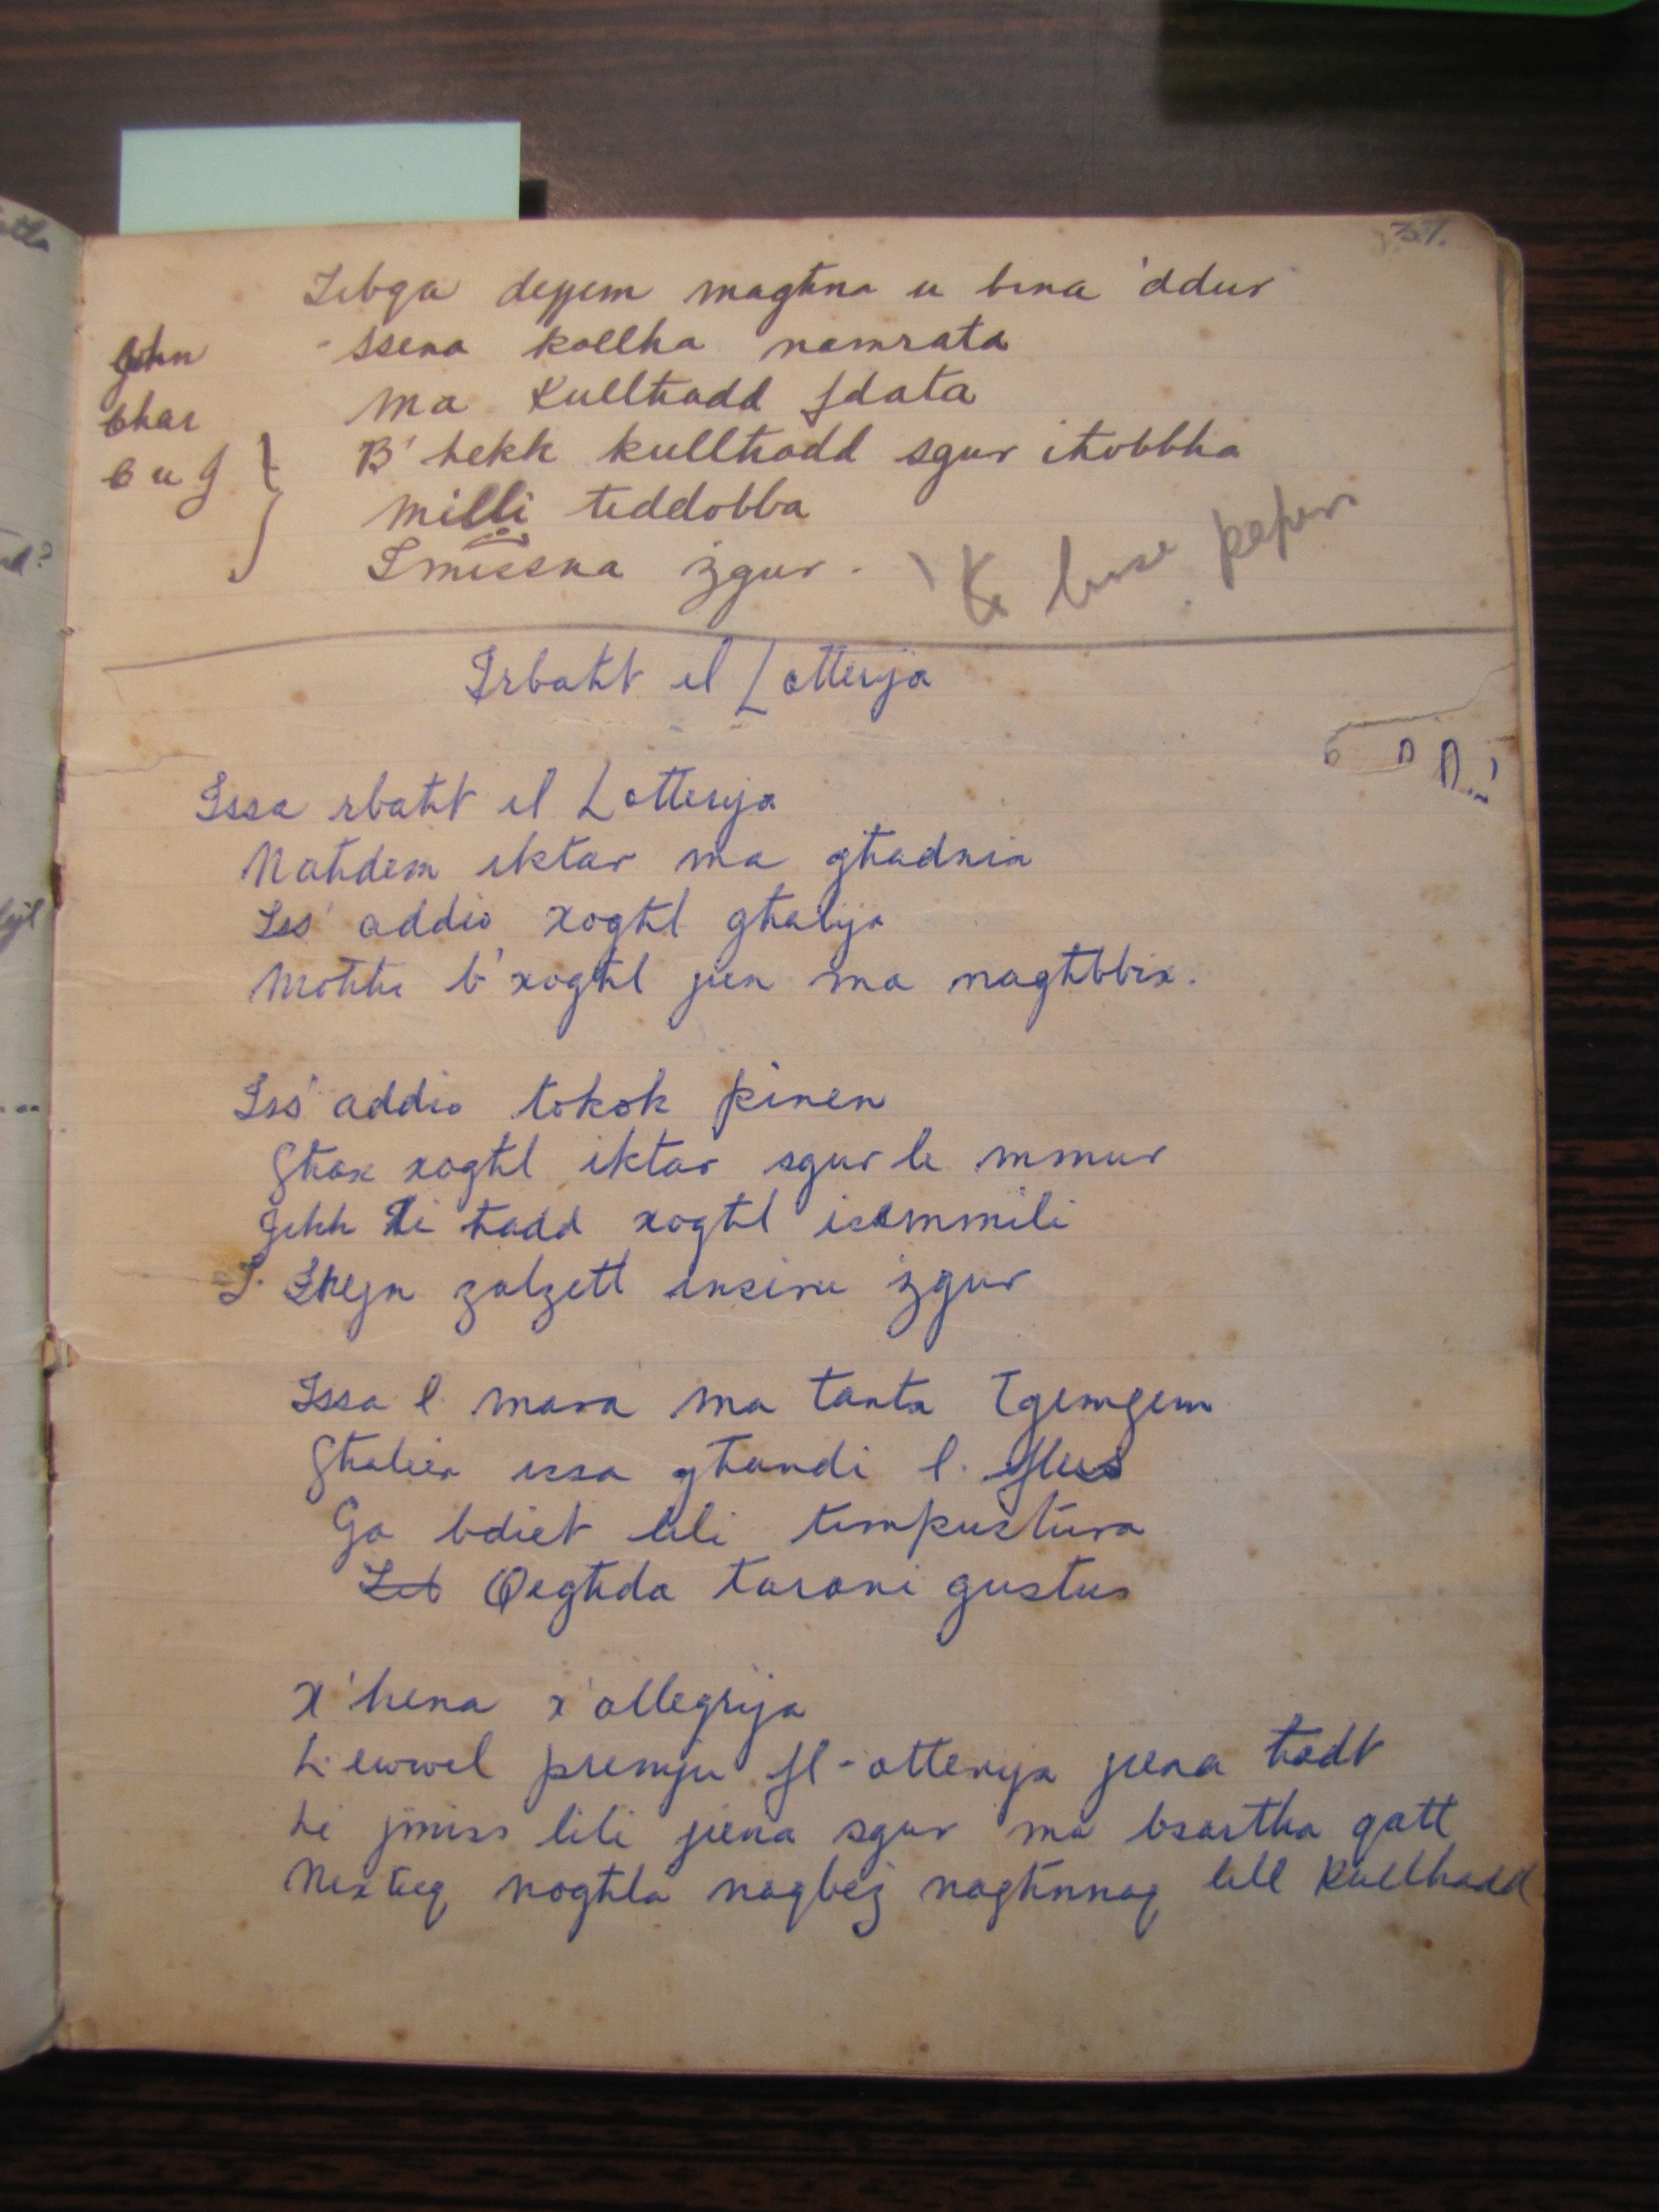 37.
Tibqa dejjem magħna u bina 'ddur
John - ssena kollha namrata
Char ma Kullħadd fdata
C u J } B'hekk kullħadd sgur iħobbha
milli tiddobba
Imissna żgur.
Irbaħt il Lotterija
Issa rbaħt il Lotterija
Naħdem iktar ma għadnix
Iss' addio xogħl għalija
Moħħi b'xogħl jien ma nagħtbbix.
Iss' addio tokok pinen
Għax xogħl iktar sgur le mmur
Jekk li ħadd xogħl isemmili
I. Żewġ zalzett insiru żgur
Issa l mara ma tanta Tgemgem
Għaliex issa għandi l. flus
Ga bdiet lili timpustura
Qegħda tarani gustus
X'hena x'allegrija
L ewwel premju fl-otterija jiena ħadt
Li jmiss lili jiena sgur ma bsartha qatt
Nixtieq nogħla naqbeż nagħnnaq lill Kullħadd